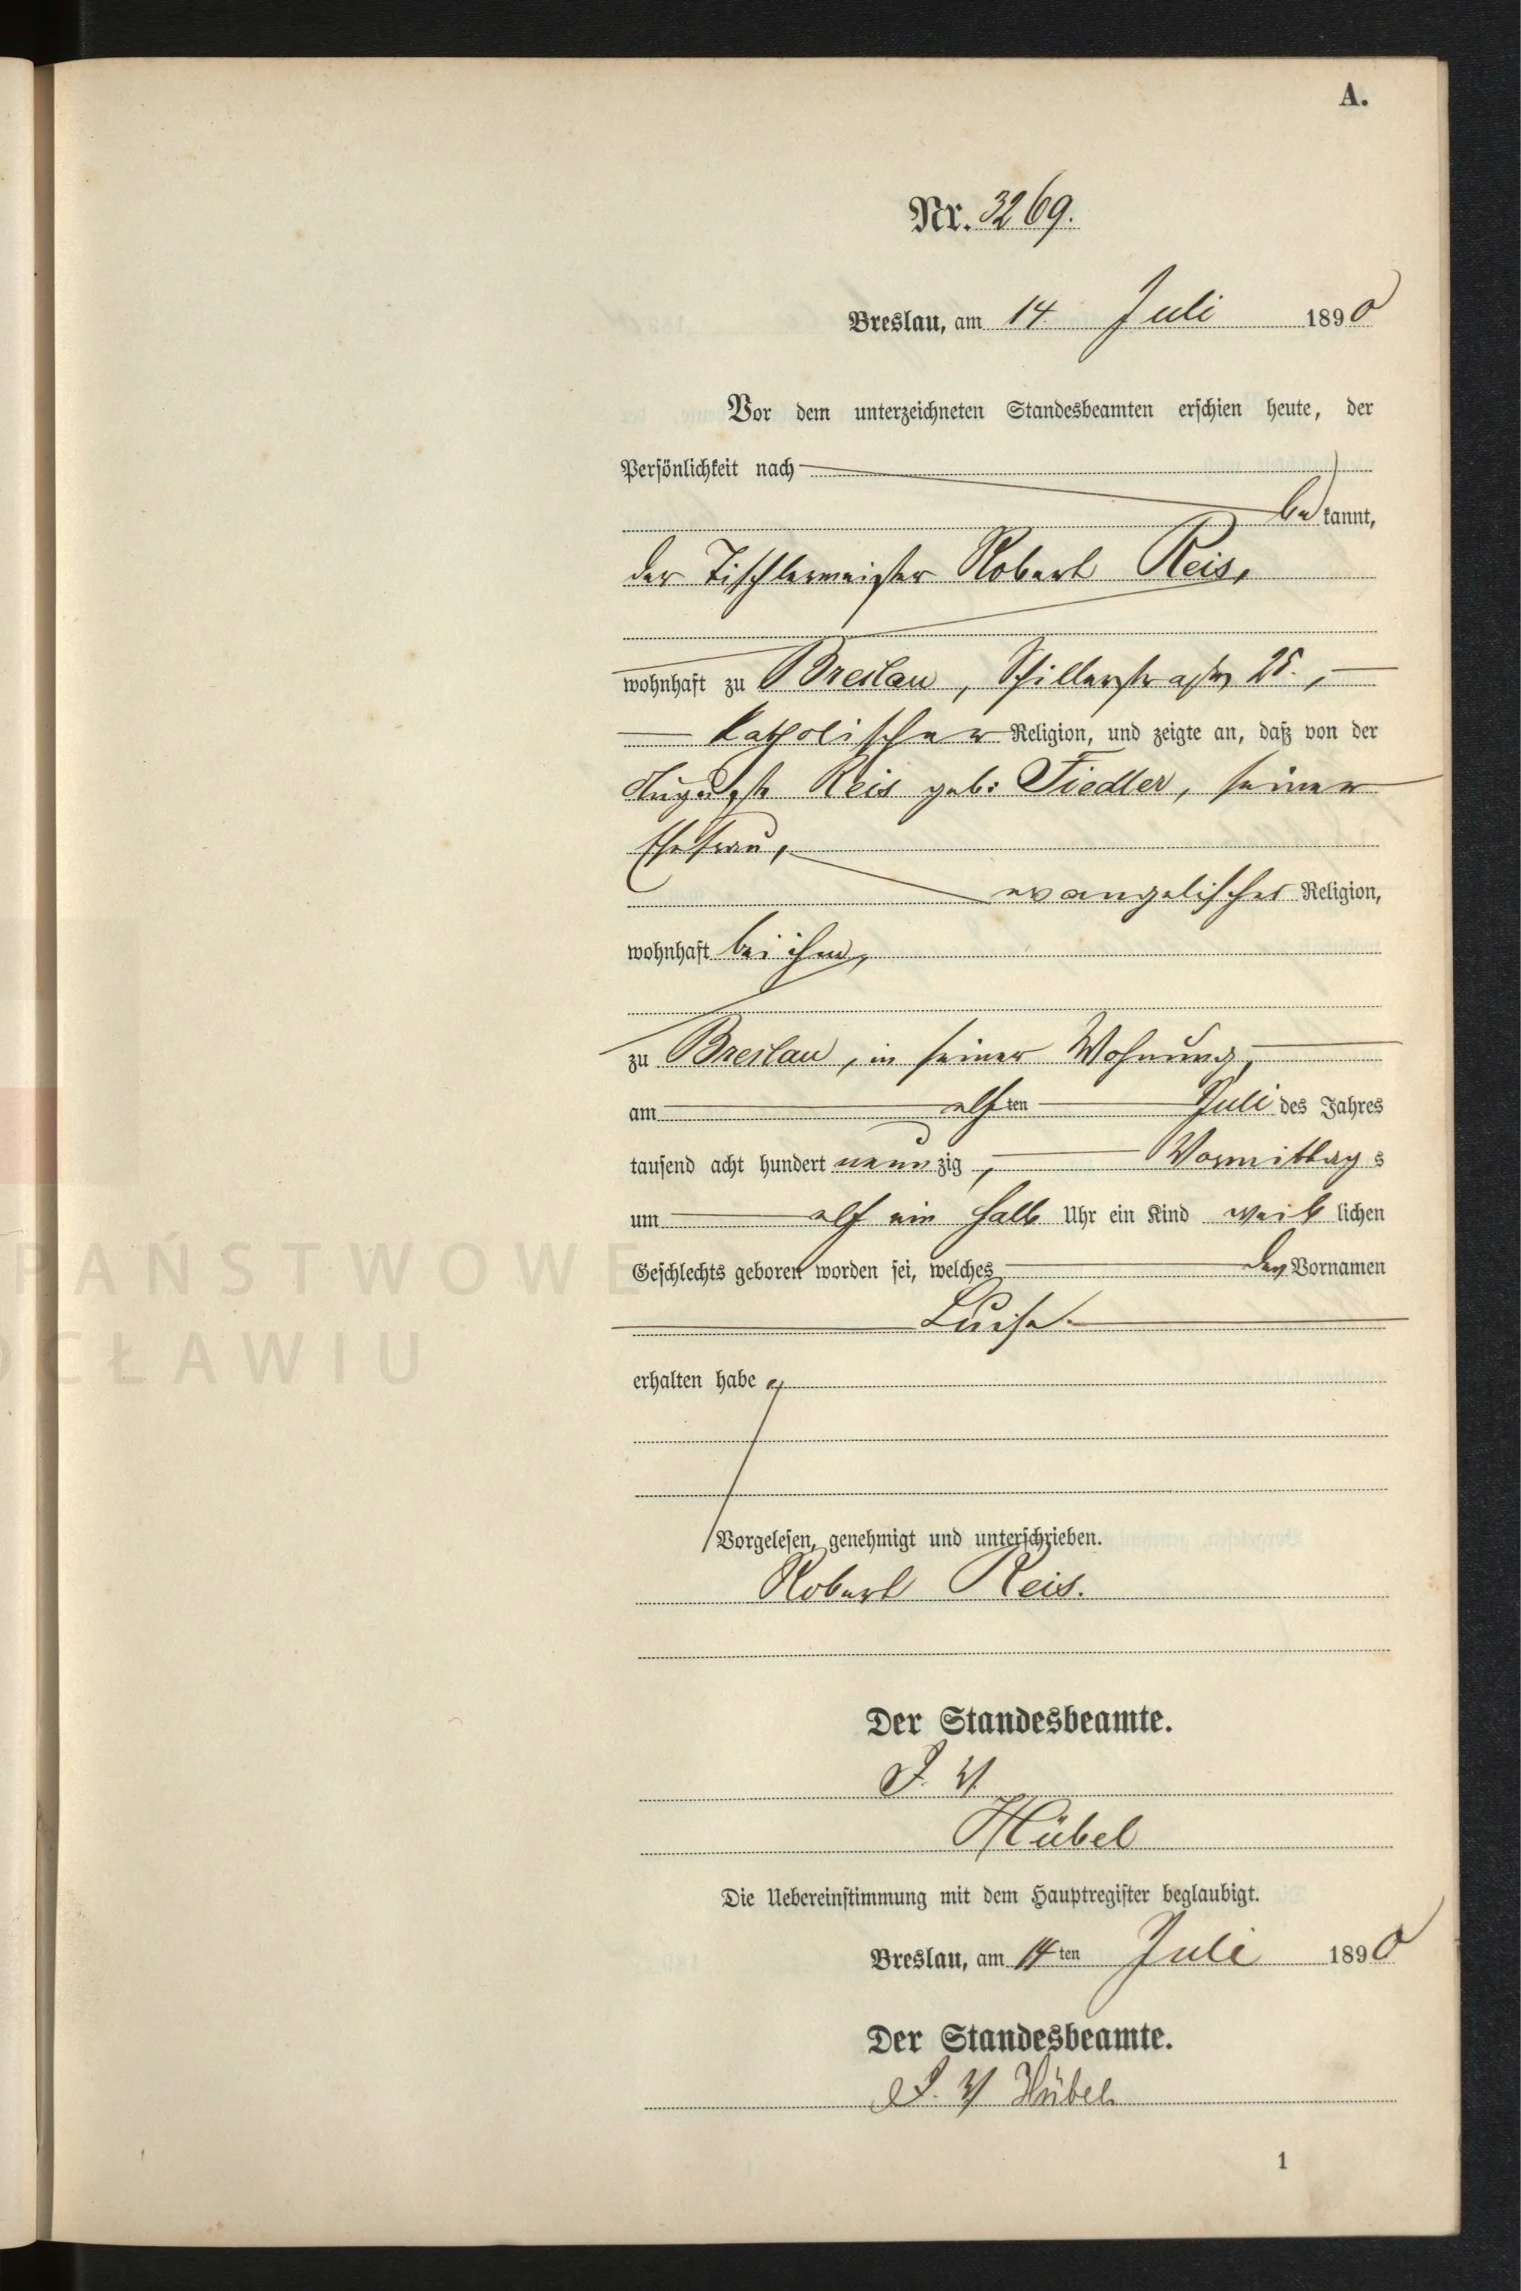 A.
Nr. 3269.
Breslau, am 14. Juli 1890
Vor dem unterzeichneten Standesbeamten erschien heute, der
Persönlichkeit nach
bekannt,
der Tischlermeister Robert Reis,
wohnhaft zu Breslau, Schillerstraße 25.,
katholischer Religion, und zeigte an, daß von der
Auguste Reis geb: Fiedler, seiner
Ehefrau,
evangelischer Religion,
wohnhaft bei ihm,
zu Breslau, in seiner Wohnung,
am elften Juli des Jahres
tausend acht hundert neunzig, Vormittags
um elf ein halb Uhr ein Kind weiblichen
Geschlechts geboren worden sei, welches den Vornamen
Luise
erhalten habe
Vorgelesen, genehmigt und unterschrieben.
Robert Reis.
Der Standesbeamte.
J. V.
Hübel
Die Uebereinstimmung mit dem Hauptregister beglaubigt.
Breslau, am 14ten Juli 1890
Der Standesbeamte.
J. V Hübel
1
PAŃSTWOWE
OCŁAWIU